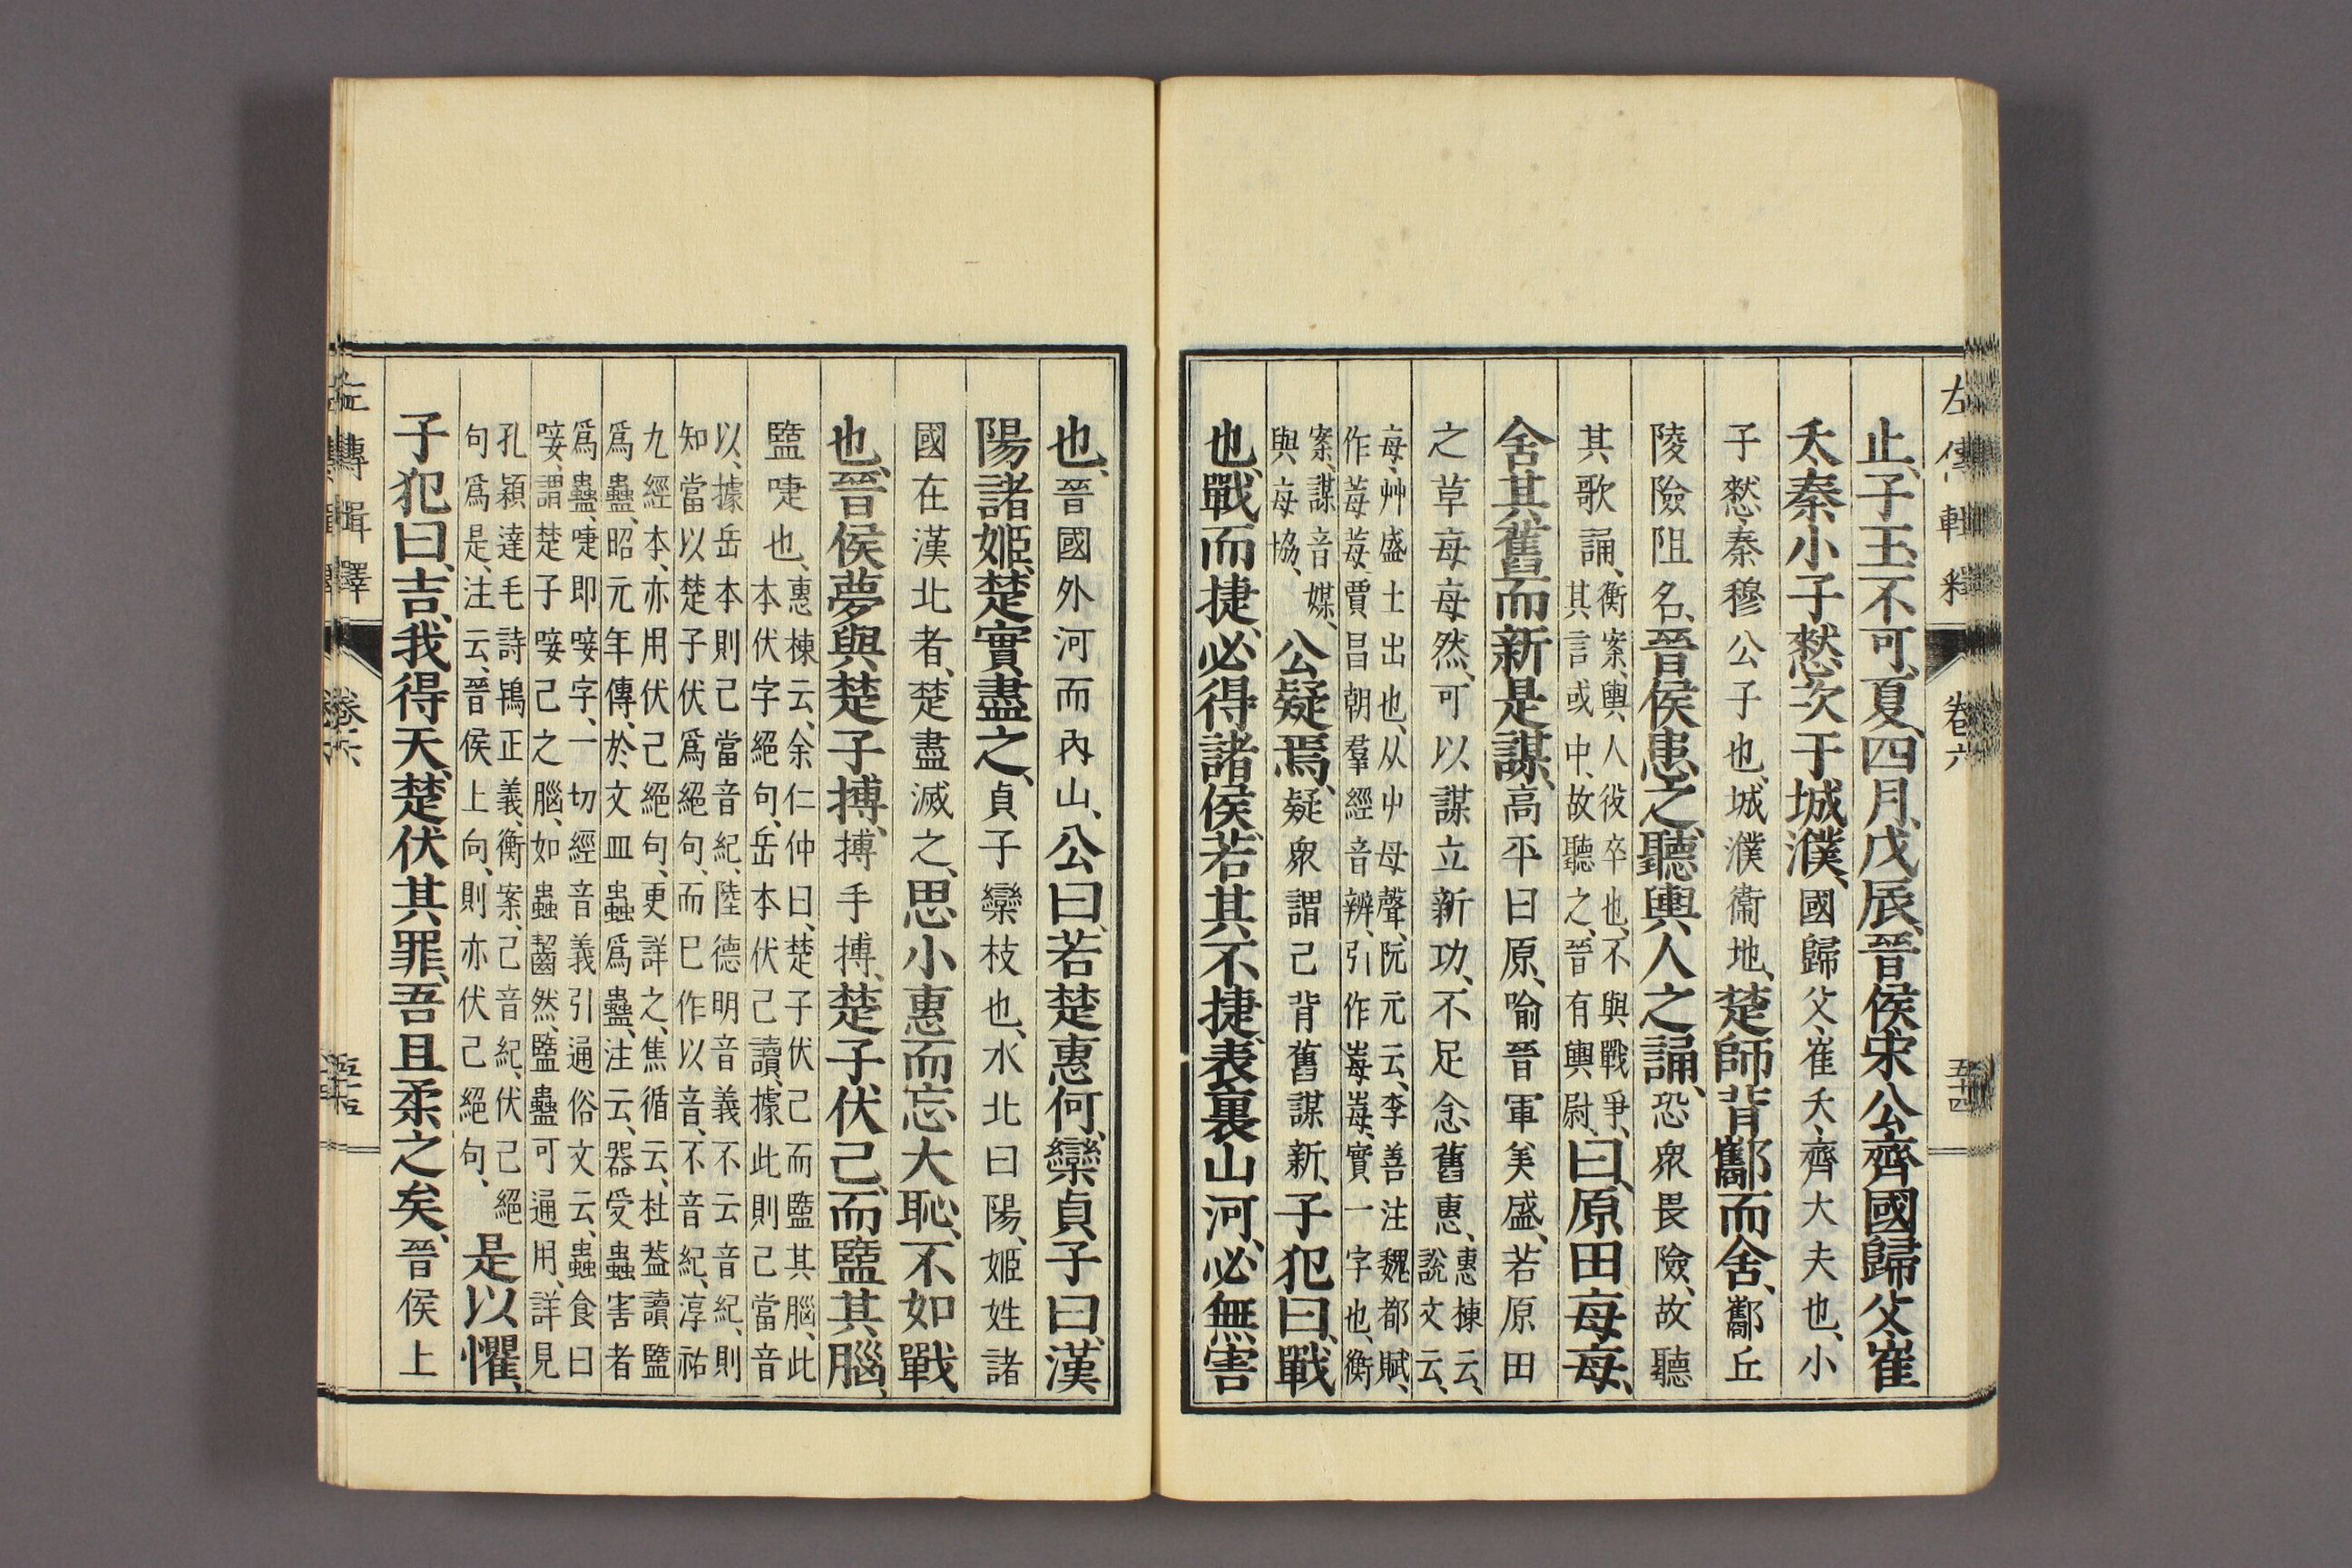 左傳輯釋 卷六 五十四
止、子玉不可、夏、四月、戊辰、晉侯宋公齊國歸父崔
夭秦小子憖次于城濮、國歸父、崔夭、齊大夫也、小
子憖、秦穆公子也、城濮衞地、楚師背酅而舍、酅丘
陵險阻名、晉侯患之、聽輿人之誦、恐衆畏險、故聽
其歌誦、衡案、輿人役卒也、不與戰爭、其言或中、故聽之、晉有輿尉、曰、原田每每、
舍其舊而新是謀、高平曰原、喻晉軍美盛、若原田
之草每每然、可以謀立新功、不足念舊惠、惠棟云、說文云、
每、艸盛土出也、从屮母聲、阮元云、李善注魏都賦、作莓莓、賈昌朝羣經音辨、引作、實一字也、衡
案、謀音媒、與每協、公疑焉、疑衆謂己背舊謀新、子犯曰、戰
也、戰而捷、必得諸侯、若其不捷、表裏山河、必無害
也、晉國外河而內山、公曰、若楚惠何、欒貞子曰、漢
陽諸姬、楚實盡之、貞子欒枝也、水北曰陽、姬姓諸
國在漢北者、楚盡滅之、思小惠而忘大恥、不如戰
也、晉侯夢與楚子搏、搏手搏、楚子伏己、而盬其腦、
盬啑也、惠棟云、余仁仲曰、楚子伏己而盬其腦、此本伏字絕句、岳本伏己讀、據此則己當音
以、據岳本則己當音紀、陸德明音義不云音紀、則知當以楚子伏爲絕句、而巳作以音、不音紀、淳祐
九經本、亦用伏己絕句、更詳之、焦循云、杜葢讀盬爲蠱、昭元年傳、於文皿蟲爲蠱、注云、器受蟲害者
爲蠱、啑卽唼字、一切經音義引通俗文云、蟲食曰唼、謂楚子唼己之腦、如蟲齧然、盬蠱可通用、詳見
孔穎達毛詩鴇正義、衡案、己音紀、伏己絕句爲是、注云、晉侯上向、則亦伏己絕句、是以懼、
子犯曰、吉、我得天、楚伏其罪、吾且柔之矣、晉侯上
左傳輯釋 卷六 五十五